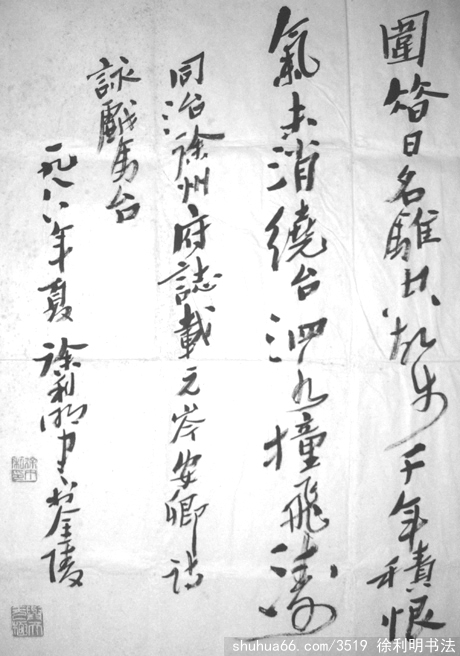 圍日名騅步千年積恨
氣未消繞台泗水撞飛濤
同治徐州府誌載元岑安卿詩
詠戲馬台
一九八八年夏徐利明書於金陵
shuhua66.com/3519 徐利明书法